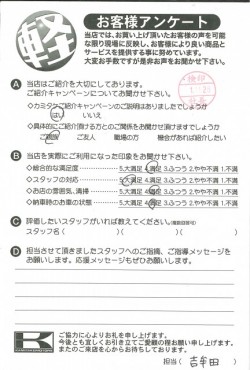 軽
お客様アンケート
当店では、お買い上げ頂いたお客様の声を可能
な限り現場に反映し、お客様により良い商品と
サービスを提供する事に努めています。
大変お手数ですが是非お声をお聞かせ下さい。
A 当店はご紹介を大切にしております。
ご紹介キャンペーンについてお聞かせ下さい。
◇カミタケご紹介キャンペーンのご説明はありましたでしょうか
はい いいえ
◇具体的にご紹介頂ける方とのご関係をお聞かせ頂けますでしょうか
ご親族 ご友人 職場の方 機会があれば紹介したい
B 当店を実際にご利用になった印象をお聞かせ下さい。
◇総合的な満足度 5.大満足 4.満足 3.ふつう 2.やや不満 1.不満
◇スタッフの対応 5.大満足 4.満足 3.ふつう 2.やや不満 1.不満
◇お店の雰囲気、清掃 5.大満足 4.満足 3.ふつう 2.やや不満 1.不満
◇納車時のお車の状態 5.大満足 4.満足 3.ふつう 2.やや不満 1.不満
C 評価したいスタッフがいれば教えてください。(複数回答可)
スタッフ名( )( )( )
D 担当させて頂きましたスタッフへのご指摘、ご指導メッセージを
お願いします。応援メッセージもぜひお願いします。
K
ご協力に心よりお礼を申し上げます。
今後とも宜しくお引き立てご愛顧の程お願い申し上げます。
またのご来店を心からお待ちしております。
担当( 吉牟田 )